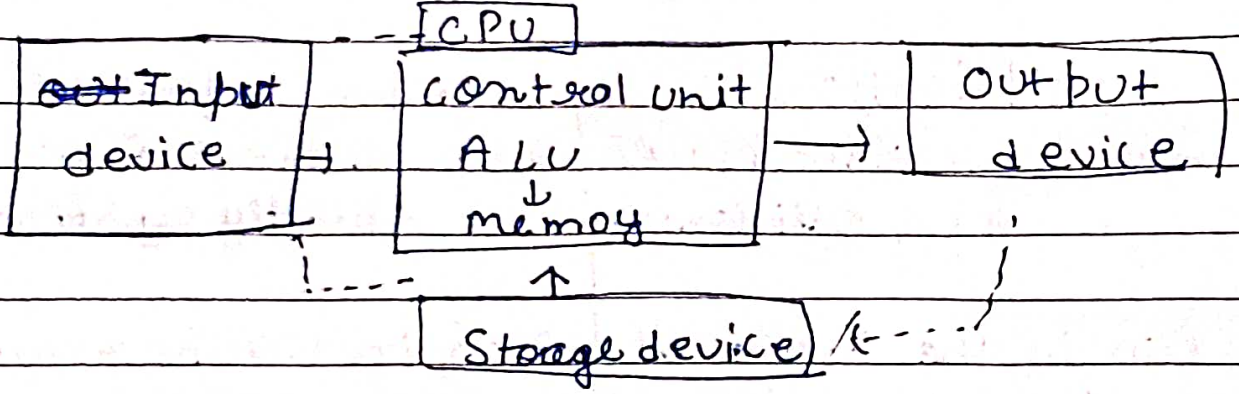 CPU
Input
device
control unit
ALU
memoy
output
device
Storage device